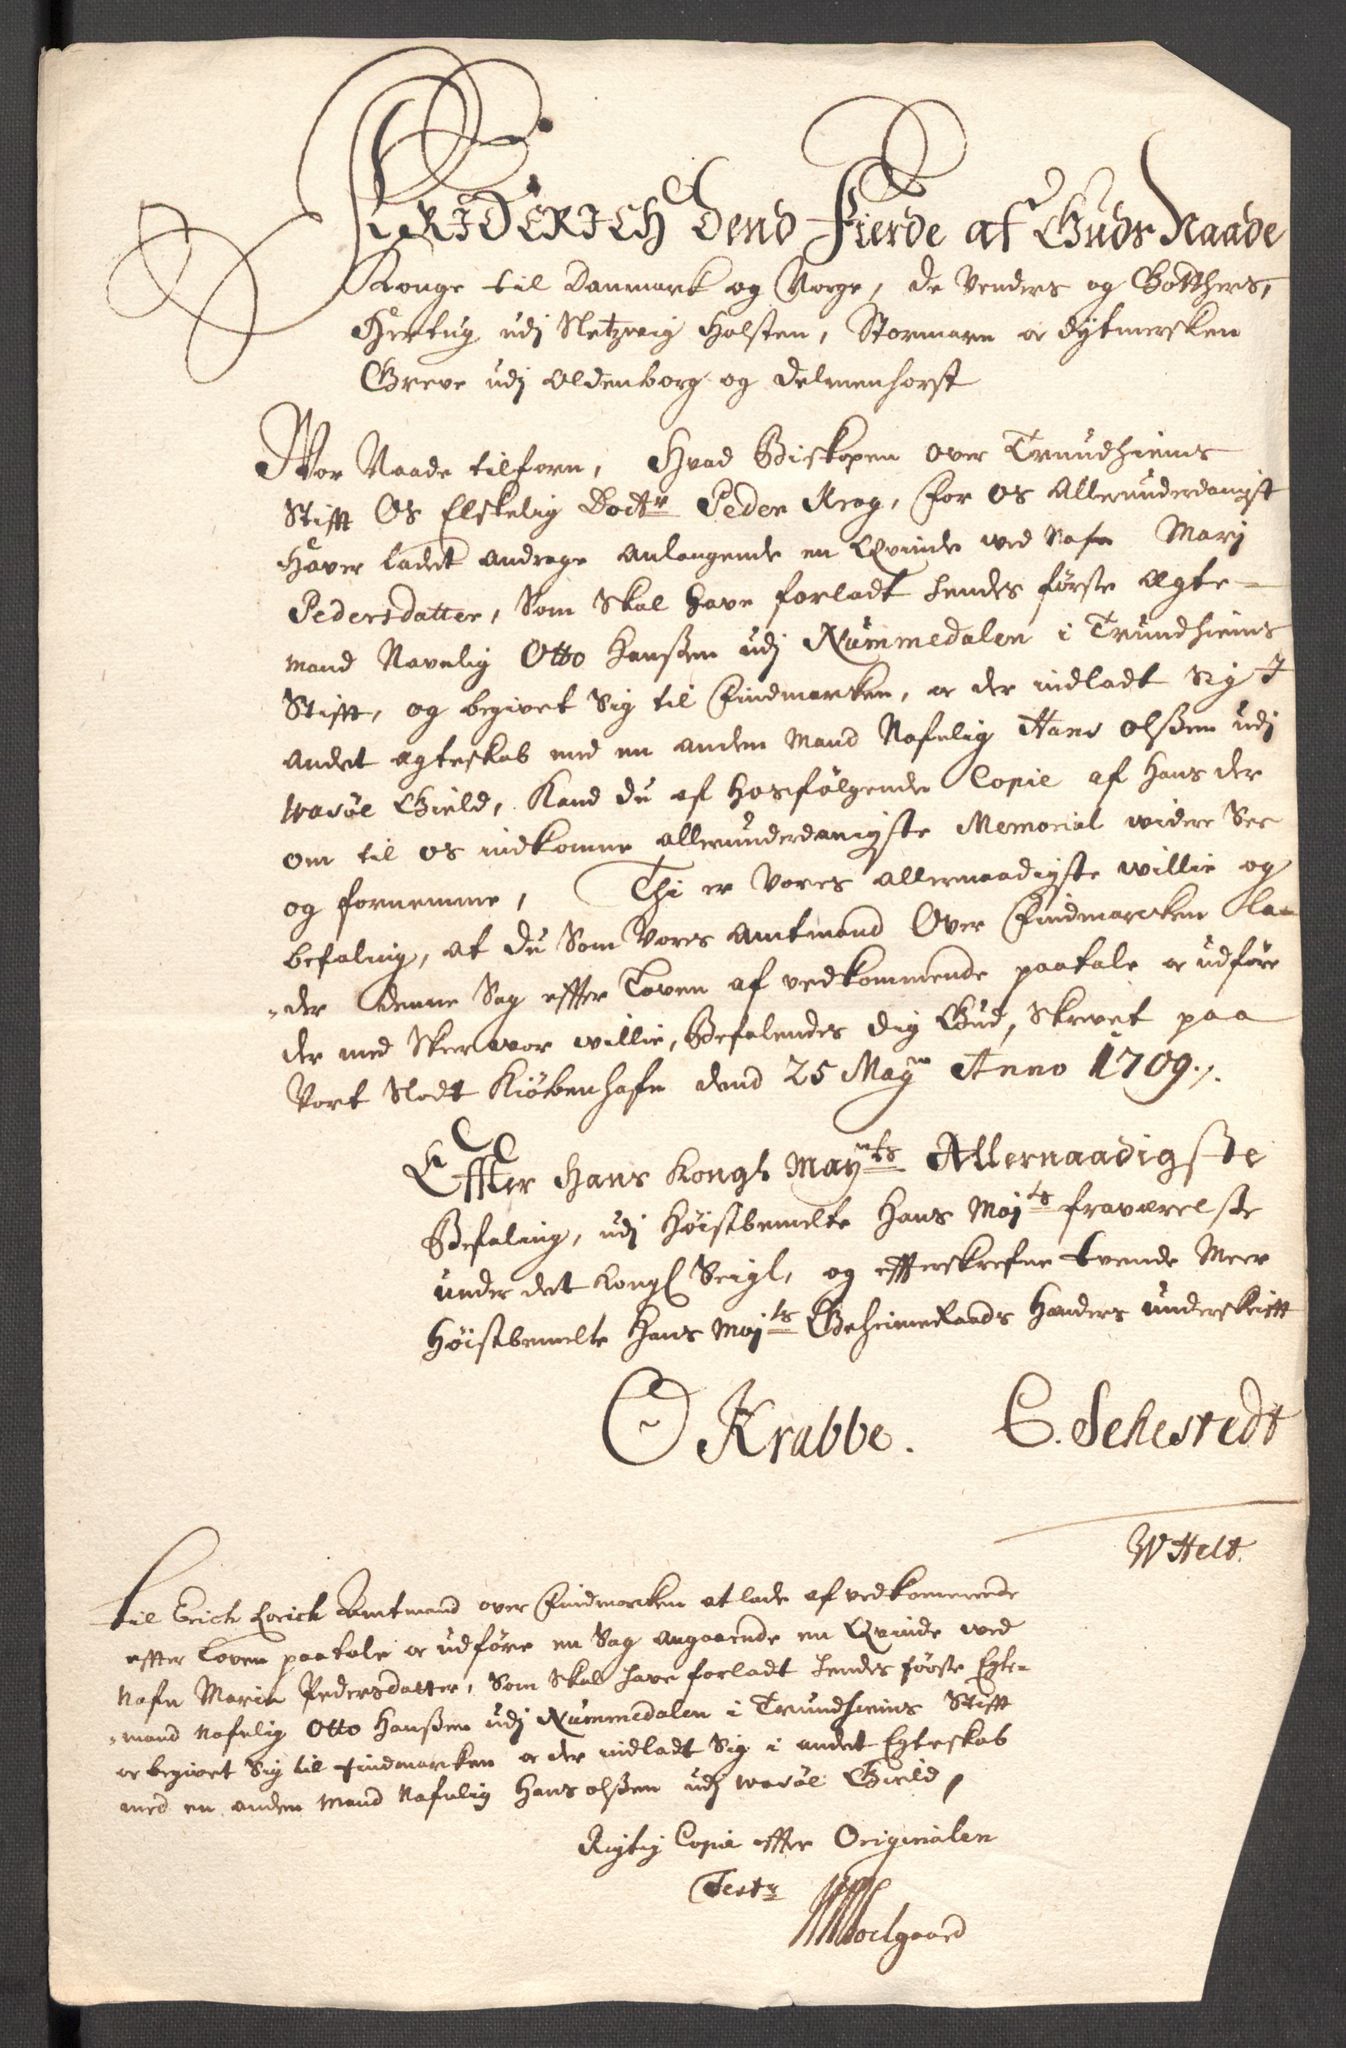 FRIDERICH Dend Fierde af Guds Naade
Konge til Danmark og Norge, de Venders og Gotthers,
Hertug udj Sletzvig Holsten, Stormarn oc Dytmersken
Greve udj Oldenborg og Delmenhorst
Wor Naade tilforn, Hvad Biskopen over Trundhiems
Stifft Os Elskelig Doctr Peder Krog, for os Allerunderdanigst
Haver ladet andrage anlangende en Qvinde ved Nafn Mary
Pedersdatter, Som Skal have forladt hendes første Ægte-
mand Navnlig Otto Hanßen udj Nummedalen i Trundhiems
Stifft, og begivet Sig til Findmarken, oc der indladt Sig J
andet ægteskab med en anden Mand Nafnlig Hans Olßen udj
Wasøe Gield, Kand du af hosfølgende Copie af Hans der
om til os indkomne allerunderdanigste Memorial widere See
og fornemme, Thi er Vores allernaadigste willie og
befaling, at du Som Vores Amtmand Over Findmarcken la-
-der denne Sag effter Loven af vedkommende paatale oc udføre
der med Skeer vor willie, Befalendes dig Gud, Skrevet paa
Vort Slodt Kiøbenhafn dend 25 May Anno 1709.
Effter Hans Kongl. Mayts Allernaadigste
Befaling, udj Høistbemelte Hans Majts fraværelße
under det Kongl Seigl, og effterskrefne tvende Meer
Høistbemelte Hans Majts Geheimeraads Hænders underskrifft
O Krabbe. C. Sehestedt
W Helt.
Til Erich Lorich Amtmand over Findmarken at lade af vedkommende
effter Loven paatale oc udføre en Sag angaaende en Qvinde ved
Nafn Marin Pedersdatter, Som Skal have forladt hendes første Egte-
-mand Nafnlig Otto Hanßen udj Nummedalen i Trundhiems Stifft
oc begivet Sig til Findmarken oc der indladt Sig i andet Egteskab
med en anden Mand Nafnlig Hans olßen udj Wasøe Gield,
Rigtig Copie effter Originalen
Test: